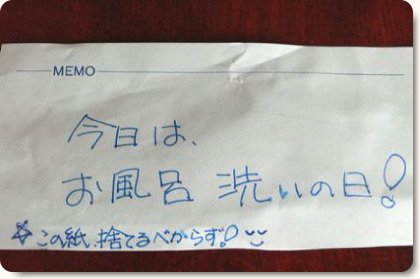 MEMO
今日は、
お風呂 洗いの日!
☆この紙、捨てるべからず!